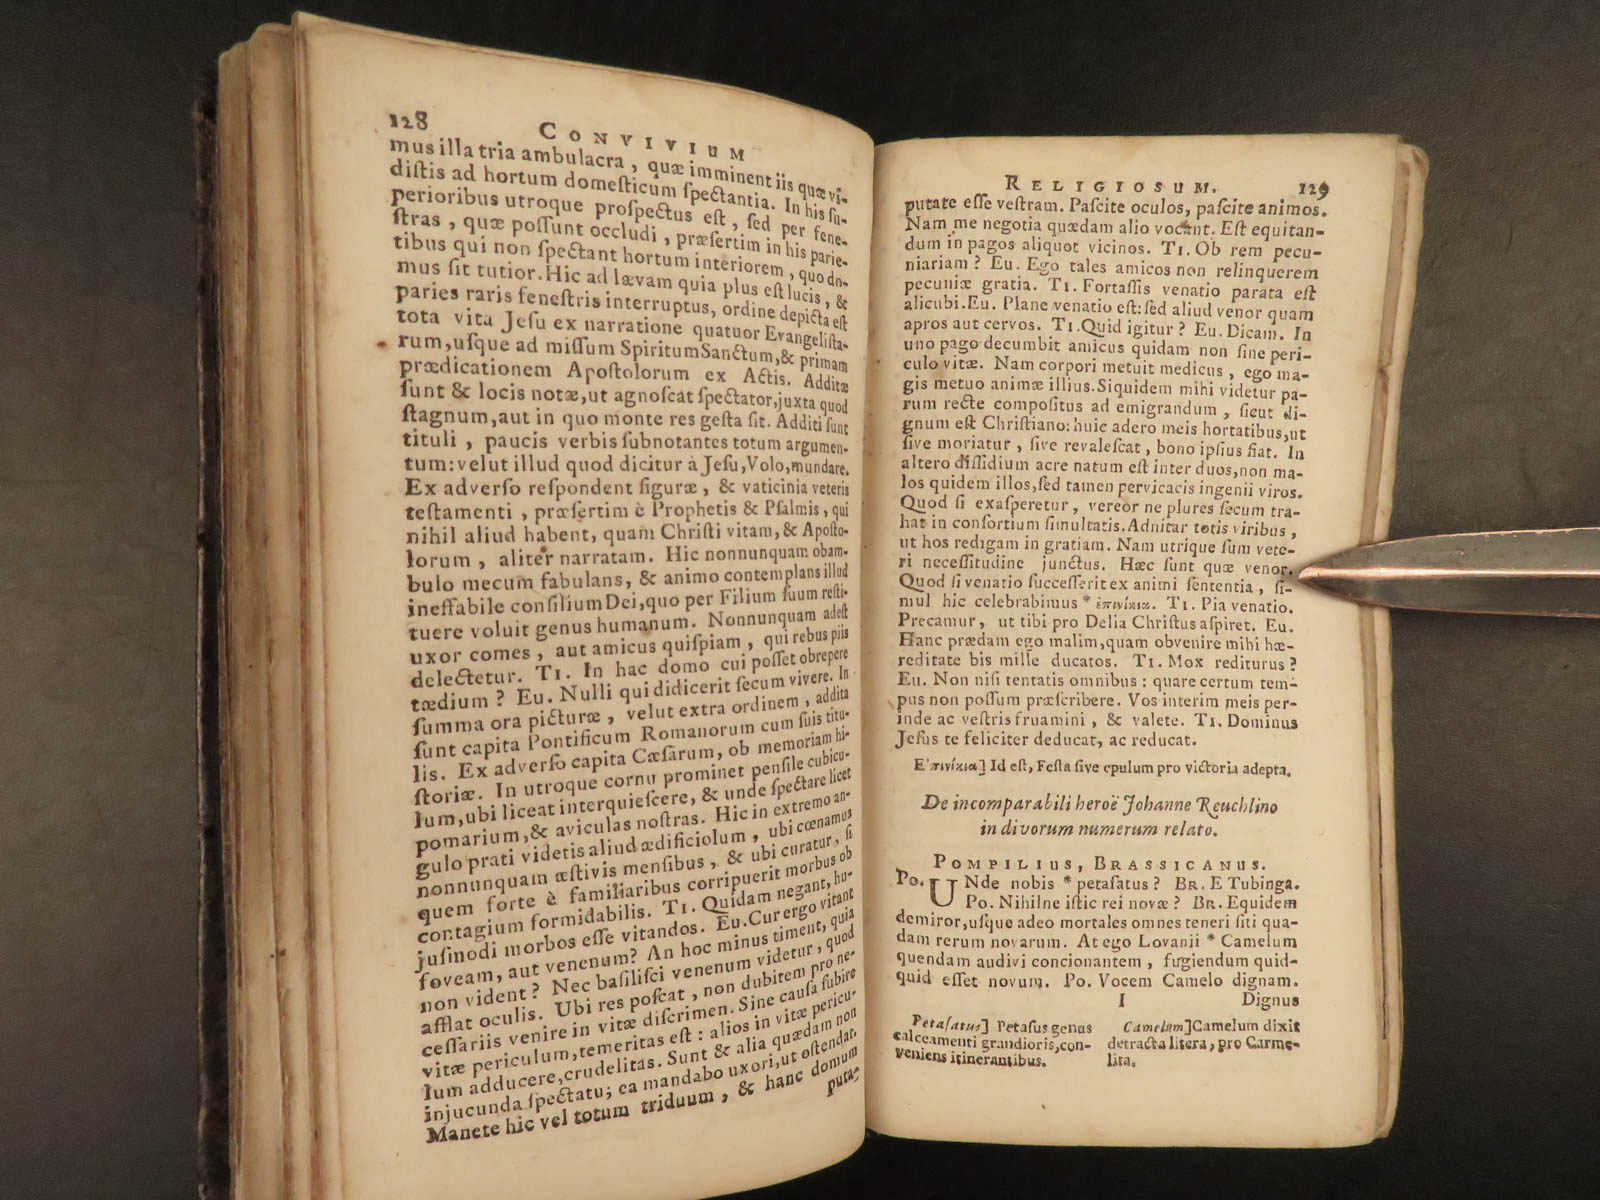 128 CONVIVIUM
mus illa tria ambulacra, quæ imminent iis quæ vi-
distis ad hortum domesticum spectantia. In his su-
perioribus utroque prospectus est, sed per fene-
stras, quæ possunt occludi, præsertim in his parie-
tibus qui non spectant hortum interiorem, quo do-
mus sit tutior. Hic ad lævam quia plus est lucis, &
paries raris fenestris interruptus, ordine depicta est
tota vita Jesu ex narratione quatuor Evangelista-
rum, usque ad missum Spiritum Sanctum, & primam
prædicationem Apostolorum ex Actis. Additæ
sunt & locis notæ, ut agnoscat spectator, juxta quod
stagnum, aut in quo monte res gesta sit. Additi sunt
tituli, paucis verbis subnotantes totum argumen-
tum: velut illud quod dicitur à Jesu, Volo, mundare.
Ex adverso respondent figuræ, & vaticinia veteris
testamenti, præsertim è Prophetis & Psalmis, qui
nihil aliud habent, quam Christi vitam, & Aposto-
lorum, aliter narratam. Hic nonnunquam obam-
bulo mecum fabulans, & animo contemplans illud
ineffabile consilium Dei, quo per Filium suum resti-
tuere voluit genus humanum. Nonnunquam adest
uxor comes, aut amicus quispiam, qui rebus piis
delectetur. TI. In hac domo cui posset obrepere
tædium? EU. Nulli qui didicerit secum vivere. In
summa ora picturæ, velut extra ordinem, addita
sunt capita Pontificum Romanorum cum suis titu-
lis. Ex adverso capita Cæsarum, ob memoriam hi-
storiæ. In utroque cornu prominet pensile cubicu-
lum, ubi liceat interquiescere, & unde spectare licet
pomarium, & aviculas nostras. Hic in extremo an-
gulo prati videtis aliud ædificiolum, ubi cœnamus
nonnunquam æstivis mensibus, & ubi curatur, si
quem forte è familiaribus corripuerit morbus ob
contagium formidabilis. TI. Quidam negant, hu-
jusmodi morbos esse vitandos. EU. Cur ergo vitant
foveam, aut venenum? An hoc minus timent, quia
non vident? Nec basilisci venenum videtur, quod
afflat oculis. Ubi res poscat, non dubitem pro ne-
cessariis venire in vitæ discrimen. Sine causa subire
vitæ periculum, temeritas est: alios in vitæ pericu-
lum adducere, crudelitas. Sunt & alia quædam non
injucunda spectatu; ea mandabo uxori, ut ostendat.
Manete hic vel totum triduum, & hanc domum
puta-
RELIGIOSUM. 129
putate esse vestram. Pascite oculos, pascite animos.
Nam me negotia quædam alio vocant. Est equitan-
dum in pagos aliquot vicinos. TI. Ob rem pecu-
niariam? EU. Ego tales amicos non relinquerem
pecuniæ gratia. TI. Fortassis venatio parata est
alicubi. EU. Plane venatio est: sed aliud venor quam
apros aut cervos. TI. Quid igitur? EU. Dicam. In
uno pago decumbit amicus quidam non sine peri-
culo vitæ. Nam corpori metuit medicus, ego ma-
gis metuo animæ illius. Siquidem mihi videtur pa-
rum recte compositus ad emigrandum, sicut di-
gnum est Christiano: huic adero meis hortatibus, ut
sive moriatur, sive revalescat, bono ipsius fiat. In
altero dissidium acre natum est inter duos, non ma-
los quidem illos, sed tamen pervicacis ingenii viros.
Quod si exasperetur, vereor ne plures secum tra-
hat in consortium simultatis. Adnitar totis viribus,
ut hos redigam in gratiam. Nam utrique sum vete-
ri necessitudine junctus. Hæc sunt quæ venor.
Quod si venatio successerit ex animi sententia, si-
mul hic celebrabimus * ἐπινίκια. TI. Pia venatio.
Precamur, ut tibi pro Delia Christus aspiret. EU.
Hanc prædam ego malim, quam obvenire mihi hæ-
reditate bis mille ducatos. TI. Mox rediturus?
EU. Non nisi tentatis omnibus: quare certum tem-
pus non possum præscribere. Vos interim meis per-
inde ac vestris fruamini, & valete. TI. Dominus
Jesus te feliciter deducat, ac reducat.
Ἐπινίκια] Id est, Festa sive epulum pro victoria adepta.
De incomparabili heroë Johanne Reuchlino
in divorum numerum relato.
POMPILIUS, BRASSICANUS.
Po. UNde nobis * petasatus? BR. E Tubinga.
Po. Nihilne istic rei novæ? BR. Equidem
demiror, usque adeo mortales omnes teneri siti qua-
dam rerum novarum. At ego Lovanii * Camelum
quendam audivi concionantem, fugiendum quid-
quid esset novum. Po. Vocem Camelo dignam.
I Dignus
Petasatus] Petasus genus
calceamenti grandioris, con-
veniens itinerantibus.
Camelum] Camelum dixit
detracta litera, pro Carme-
lita.